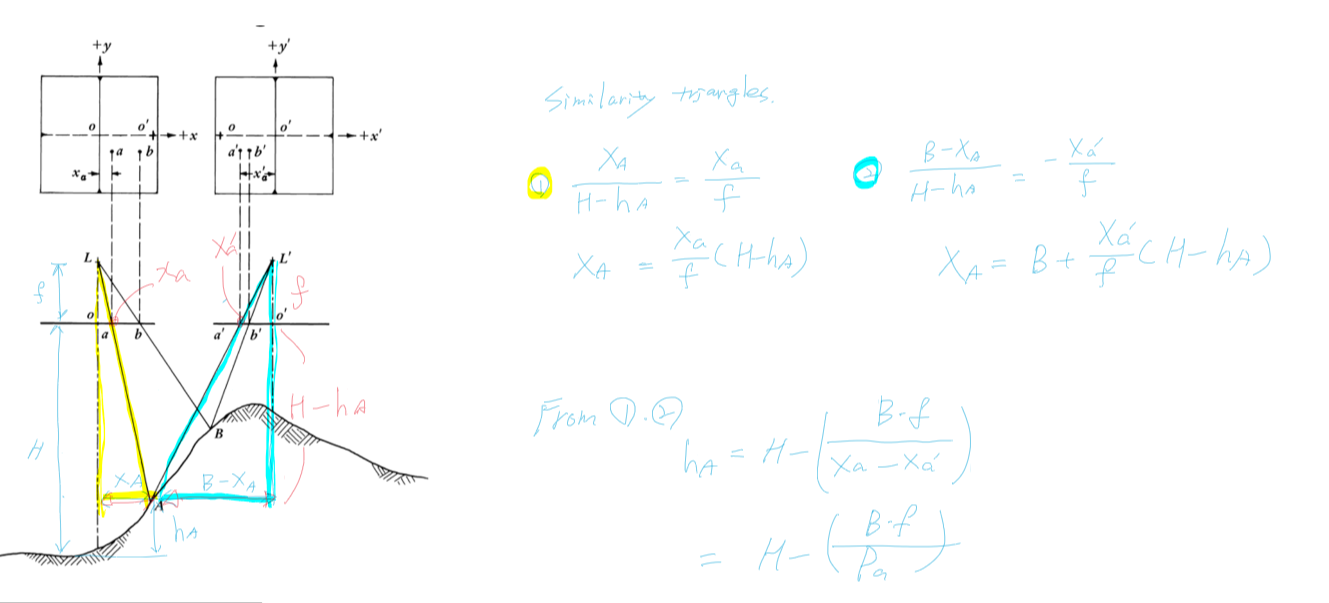 +y
+y'
o o' +x
o o' +x'
a b
a' b'
xₐ
x'ₐ
L
L'
f
Xa'
xa
f
o a b
a' b' o'
H
H-hA
B
XA
B-XA
A
hA
Similarity triangles.
① XA / (H-hA) = Xa / f
XA = Xa / f (H-hA)
② (B-XA) / (H-hA) = - Xa' / f
XA = B + Xa' / f (H-hA)
From ①.②
hA = H - (B·f / (Xa - Xa'))
= H - (B·f / Pa)